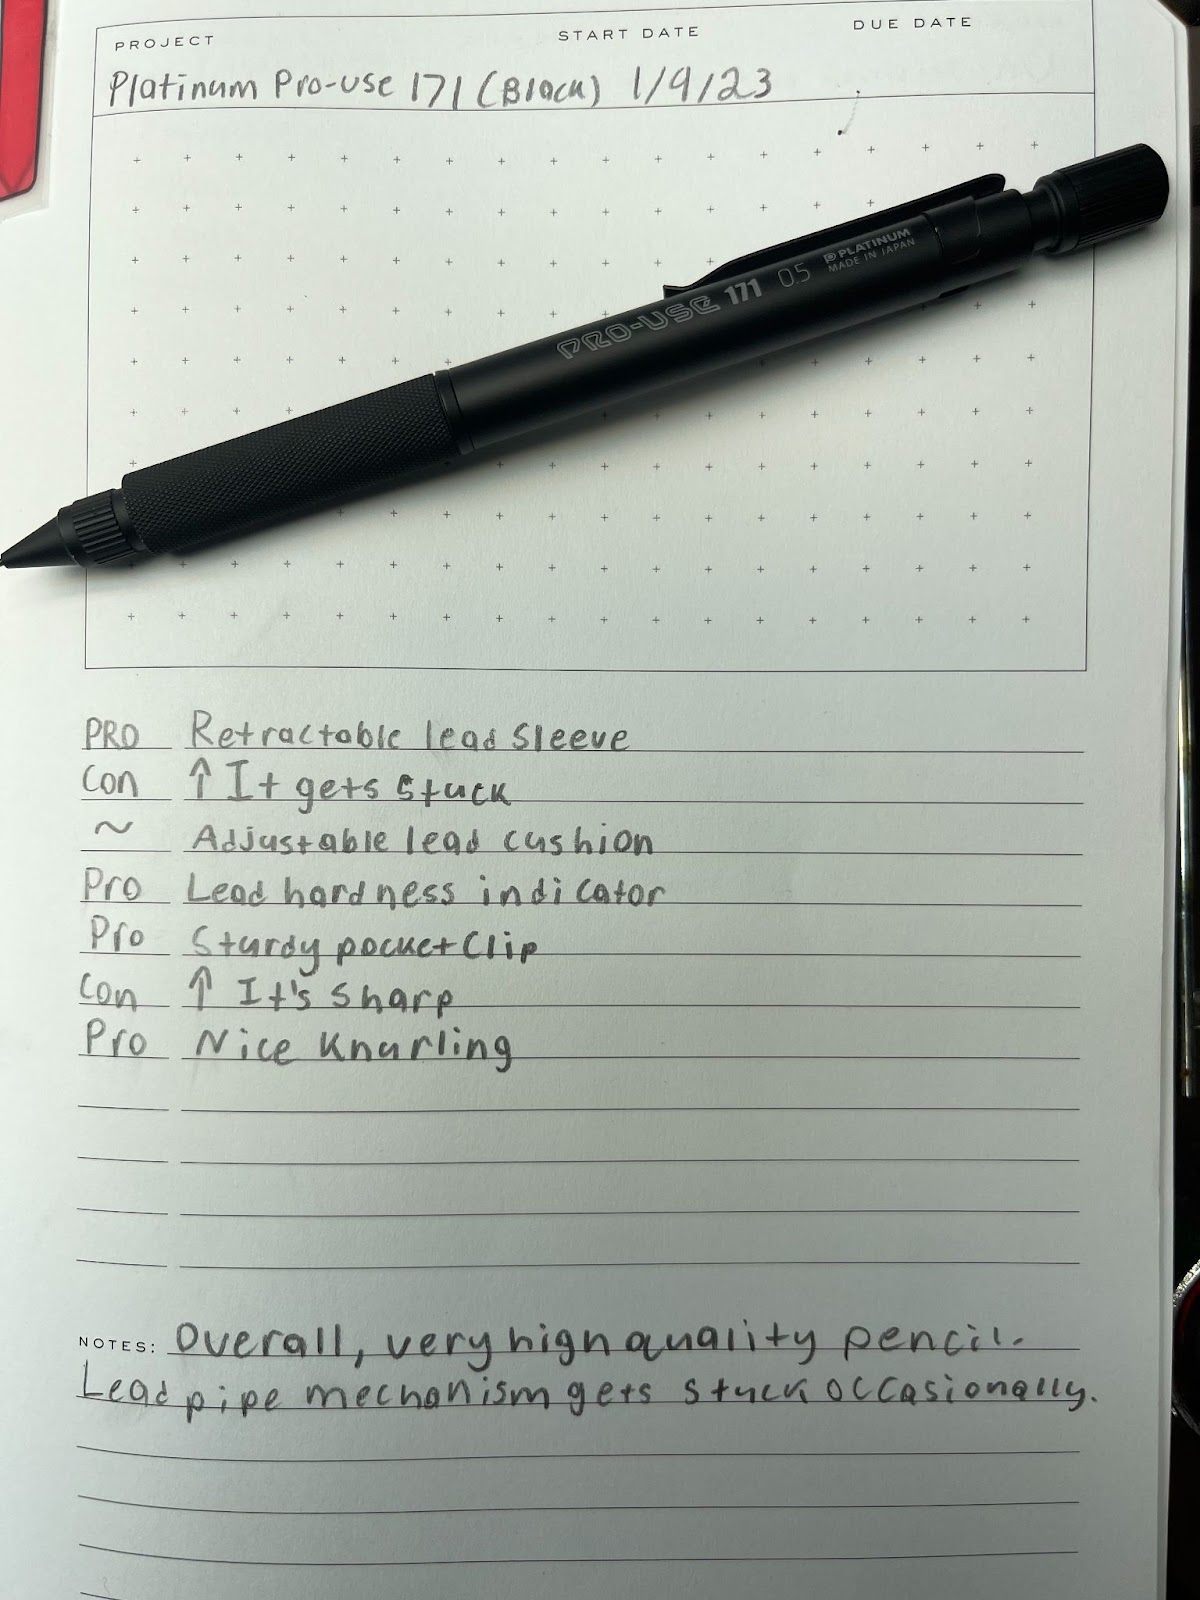 PROJECT START DATE DUE DATE
Platinum Pro-use 171 (Black) 1/9/23
PRO-USE 171 0.5 PLATINUM
MADE IN JAPAN
PRO Retractable lead sleeve
Con ↑ It gets stuck
~ Adjustable lead cushion
Pro Lead hardness indicator
Pro Sturdy pocket clip
Con ↑ It's sharp
Pro Nice Knurling
NOTES: Overall, very high quality pencil.
Lead pipe mechanism gets stuck occasionally.